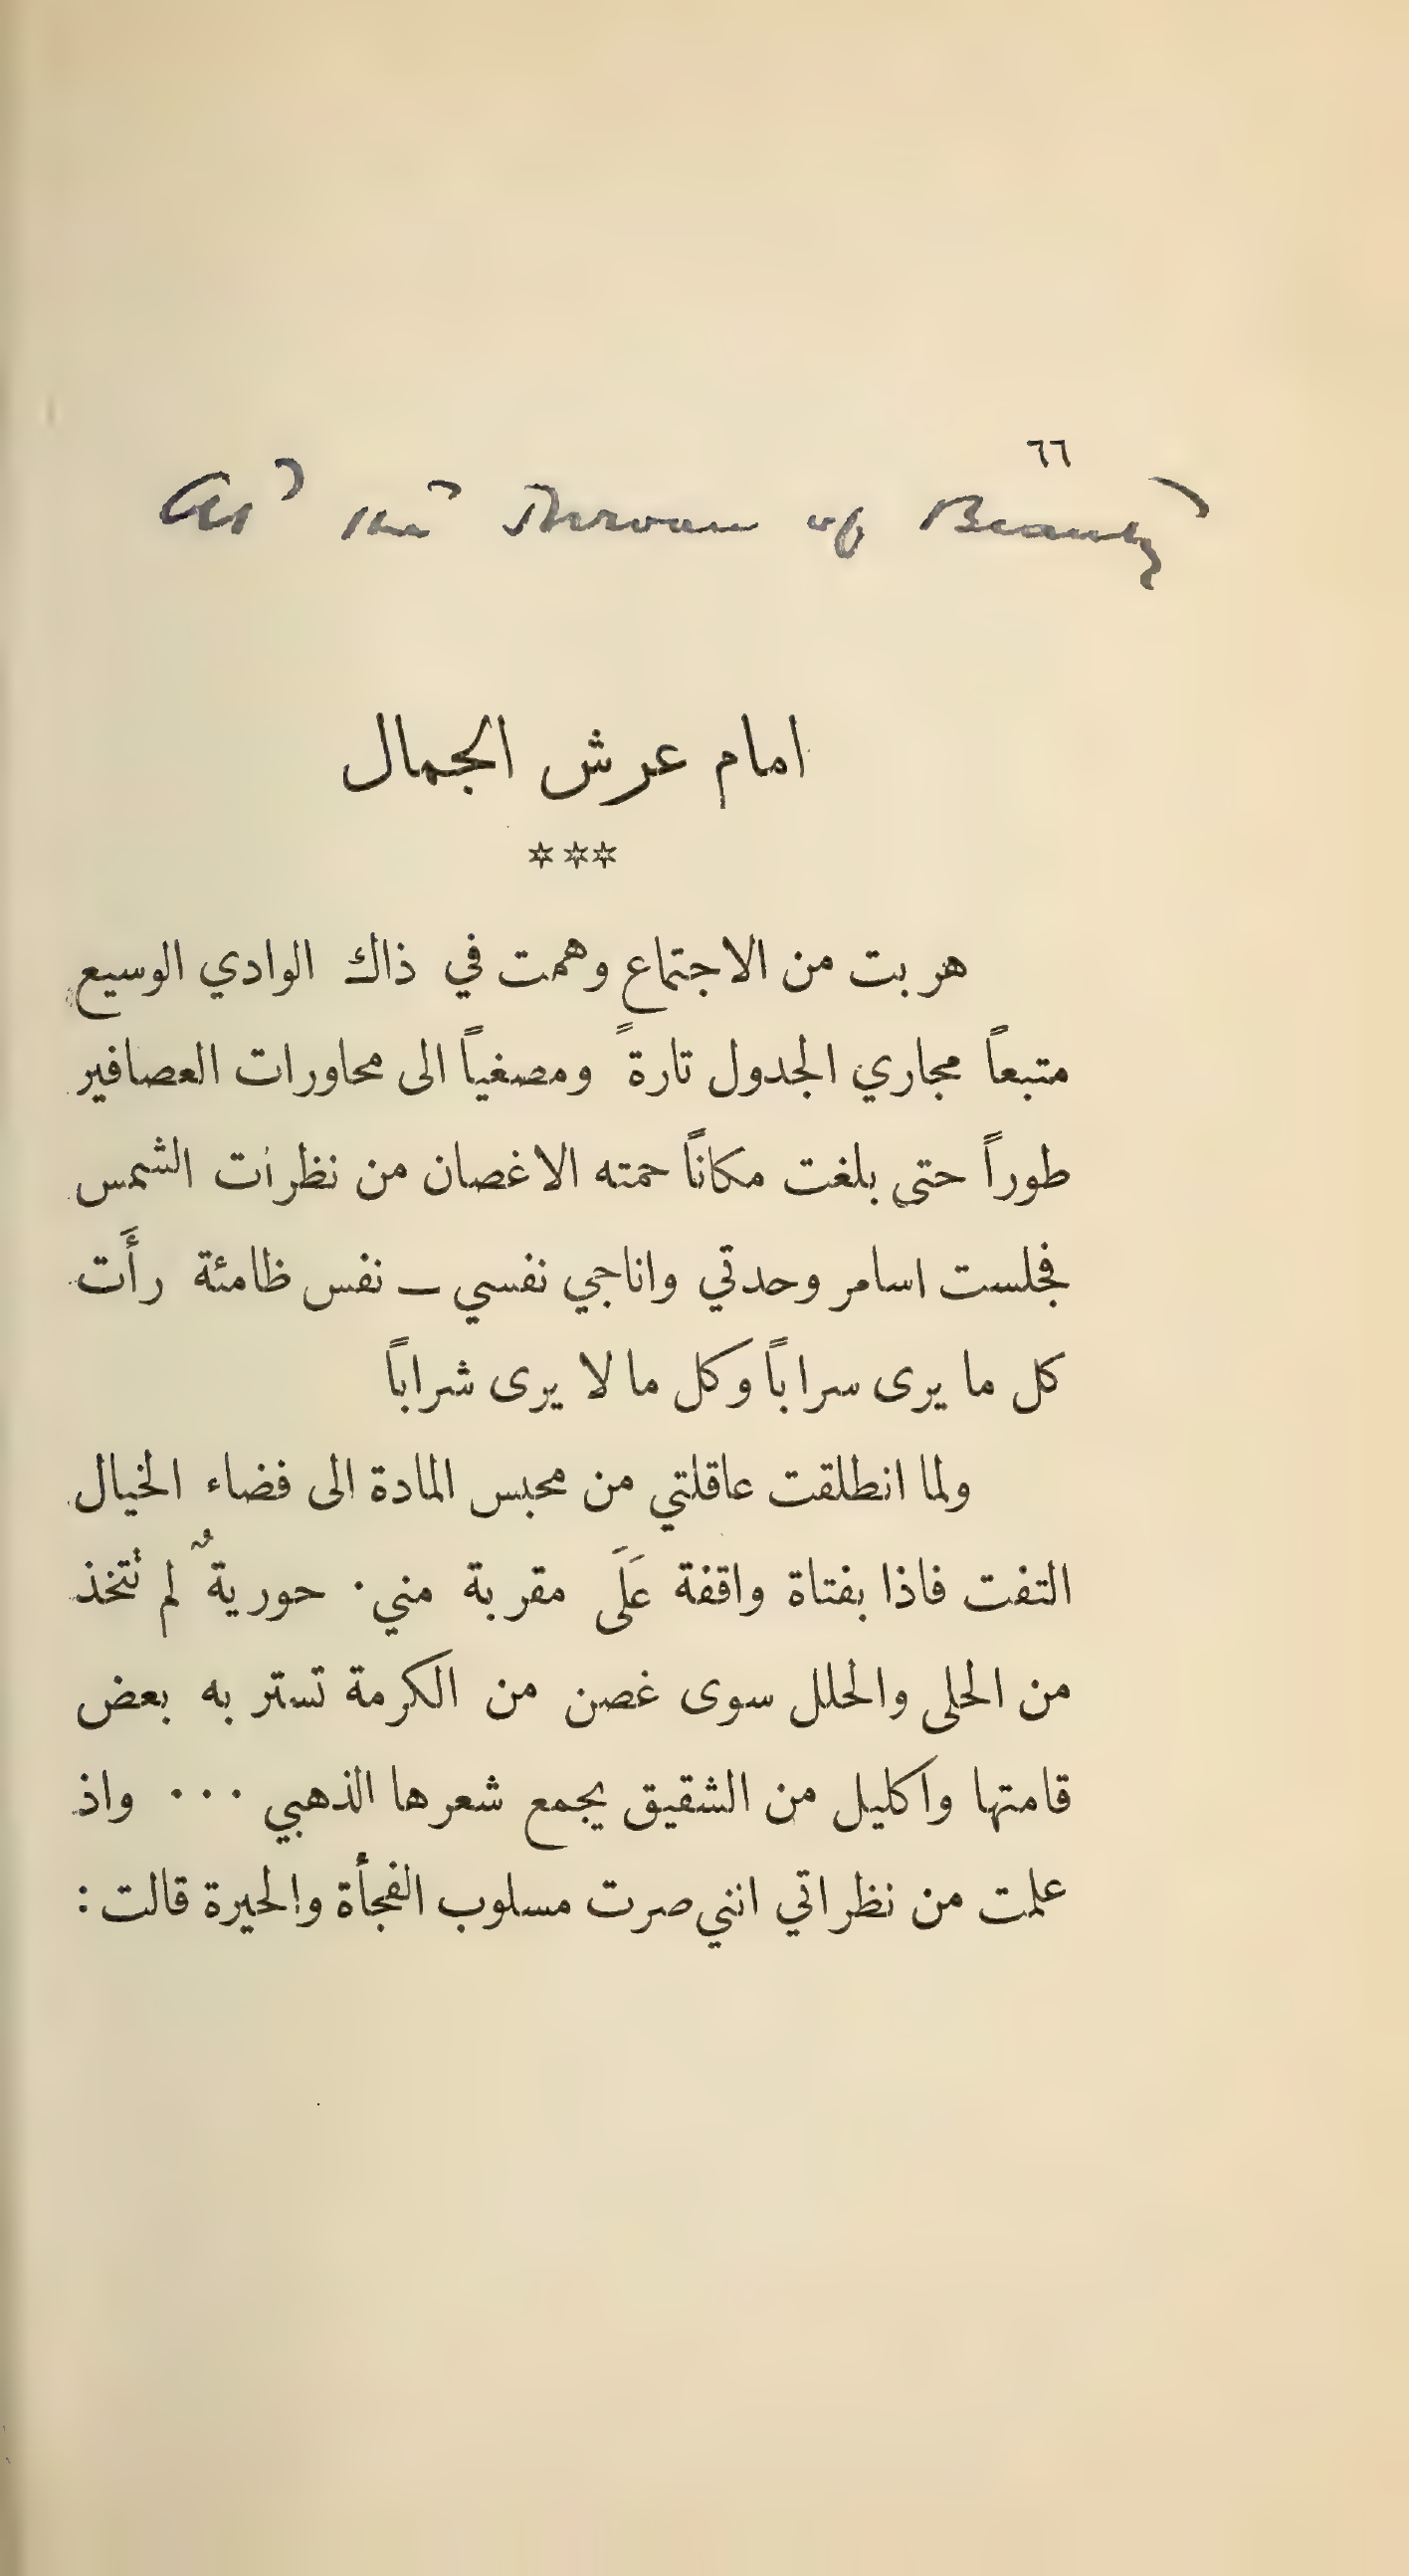 ٦٦
At the Throne of Beauty
امام عرش الجمال
***
هربت من الاجتماع وهمت في ذاك الوادي الوسيع
متبعاً مجاري الجدول تارةً ومصغياً الى محاورات العصافير
طوراً حتى بلغت مكاناً حمته الاغصان من نظرات الشمس
فجلست اسامر وحدتي واناجي نفسي – نفس ظامئة رأَت
كل ما يرى سراباً وكل ما لا يرى شراباً
ولما انطلقت عاقلتي من محبس المادة الى فضاء الخيال
التفت فاذا بفتاة واقفة عَلَى مقربة مني. حوريةٌ لم تتخذ
من الحلى والحلل سوى غصن من الكرمة تستر به بعض
قامتها واكليل من الشقيق يجمع شعرها الذهبي ... واذ
علمت من نظراتي انني صرت مسلوب الفجأة والحيرة قالت :